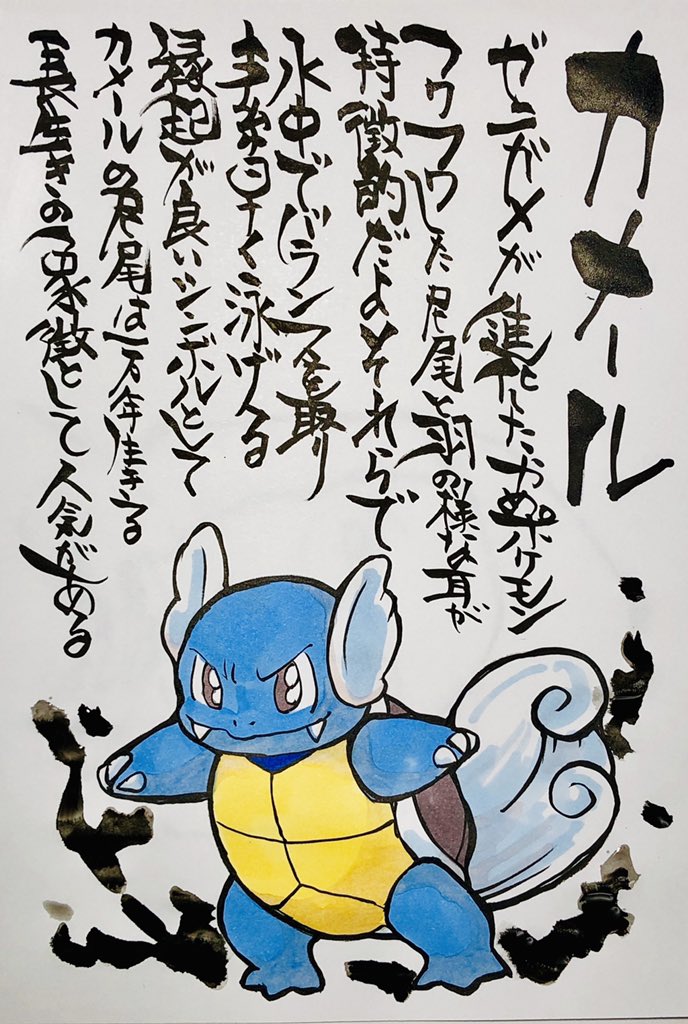 カメール
ゼニガメが進化したかめポケモン
フワフワした尻尾と羽の様な耳が
特徴的だよそれらで
水中でバランスを取り
素早く泳げる
縁起が良いシンボルとして
カメールの尻尾は一万年生きる
長生きの象徴として人気がある